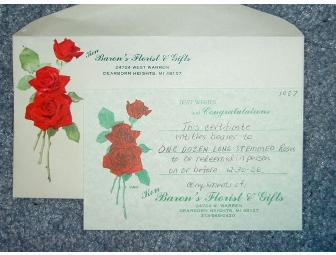 Ken
Baron's Florist & Gifts
24704 WEST WARREN
DEARBORN HEIGHTS, MI 48127
BEST WISHES
and Congratulations
This certificate
entitles bearer to
ONE DOZEN LONG STEMMED Roses
to be redeemed in person
on or before 12-30-06
compliments of:
Ken
Baron's Florist & Gifts
24704 W. WARREN
DEARBORN HEIGHTS, MI 48127